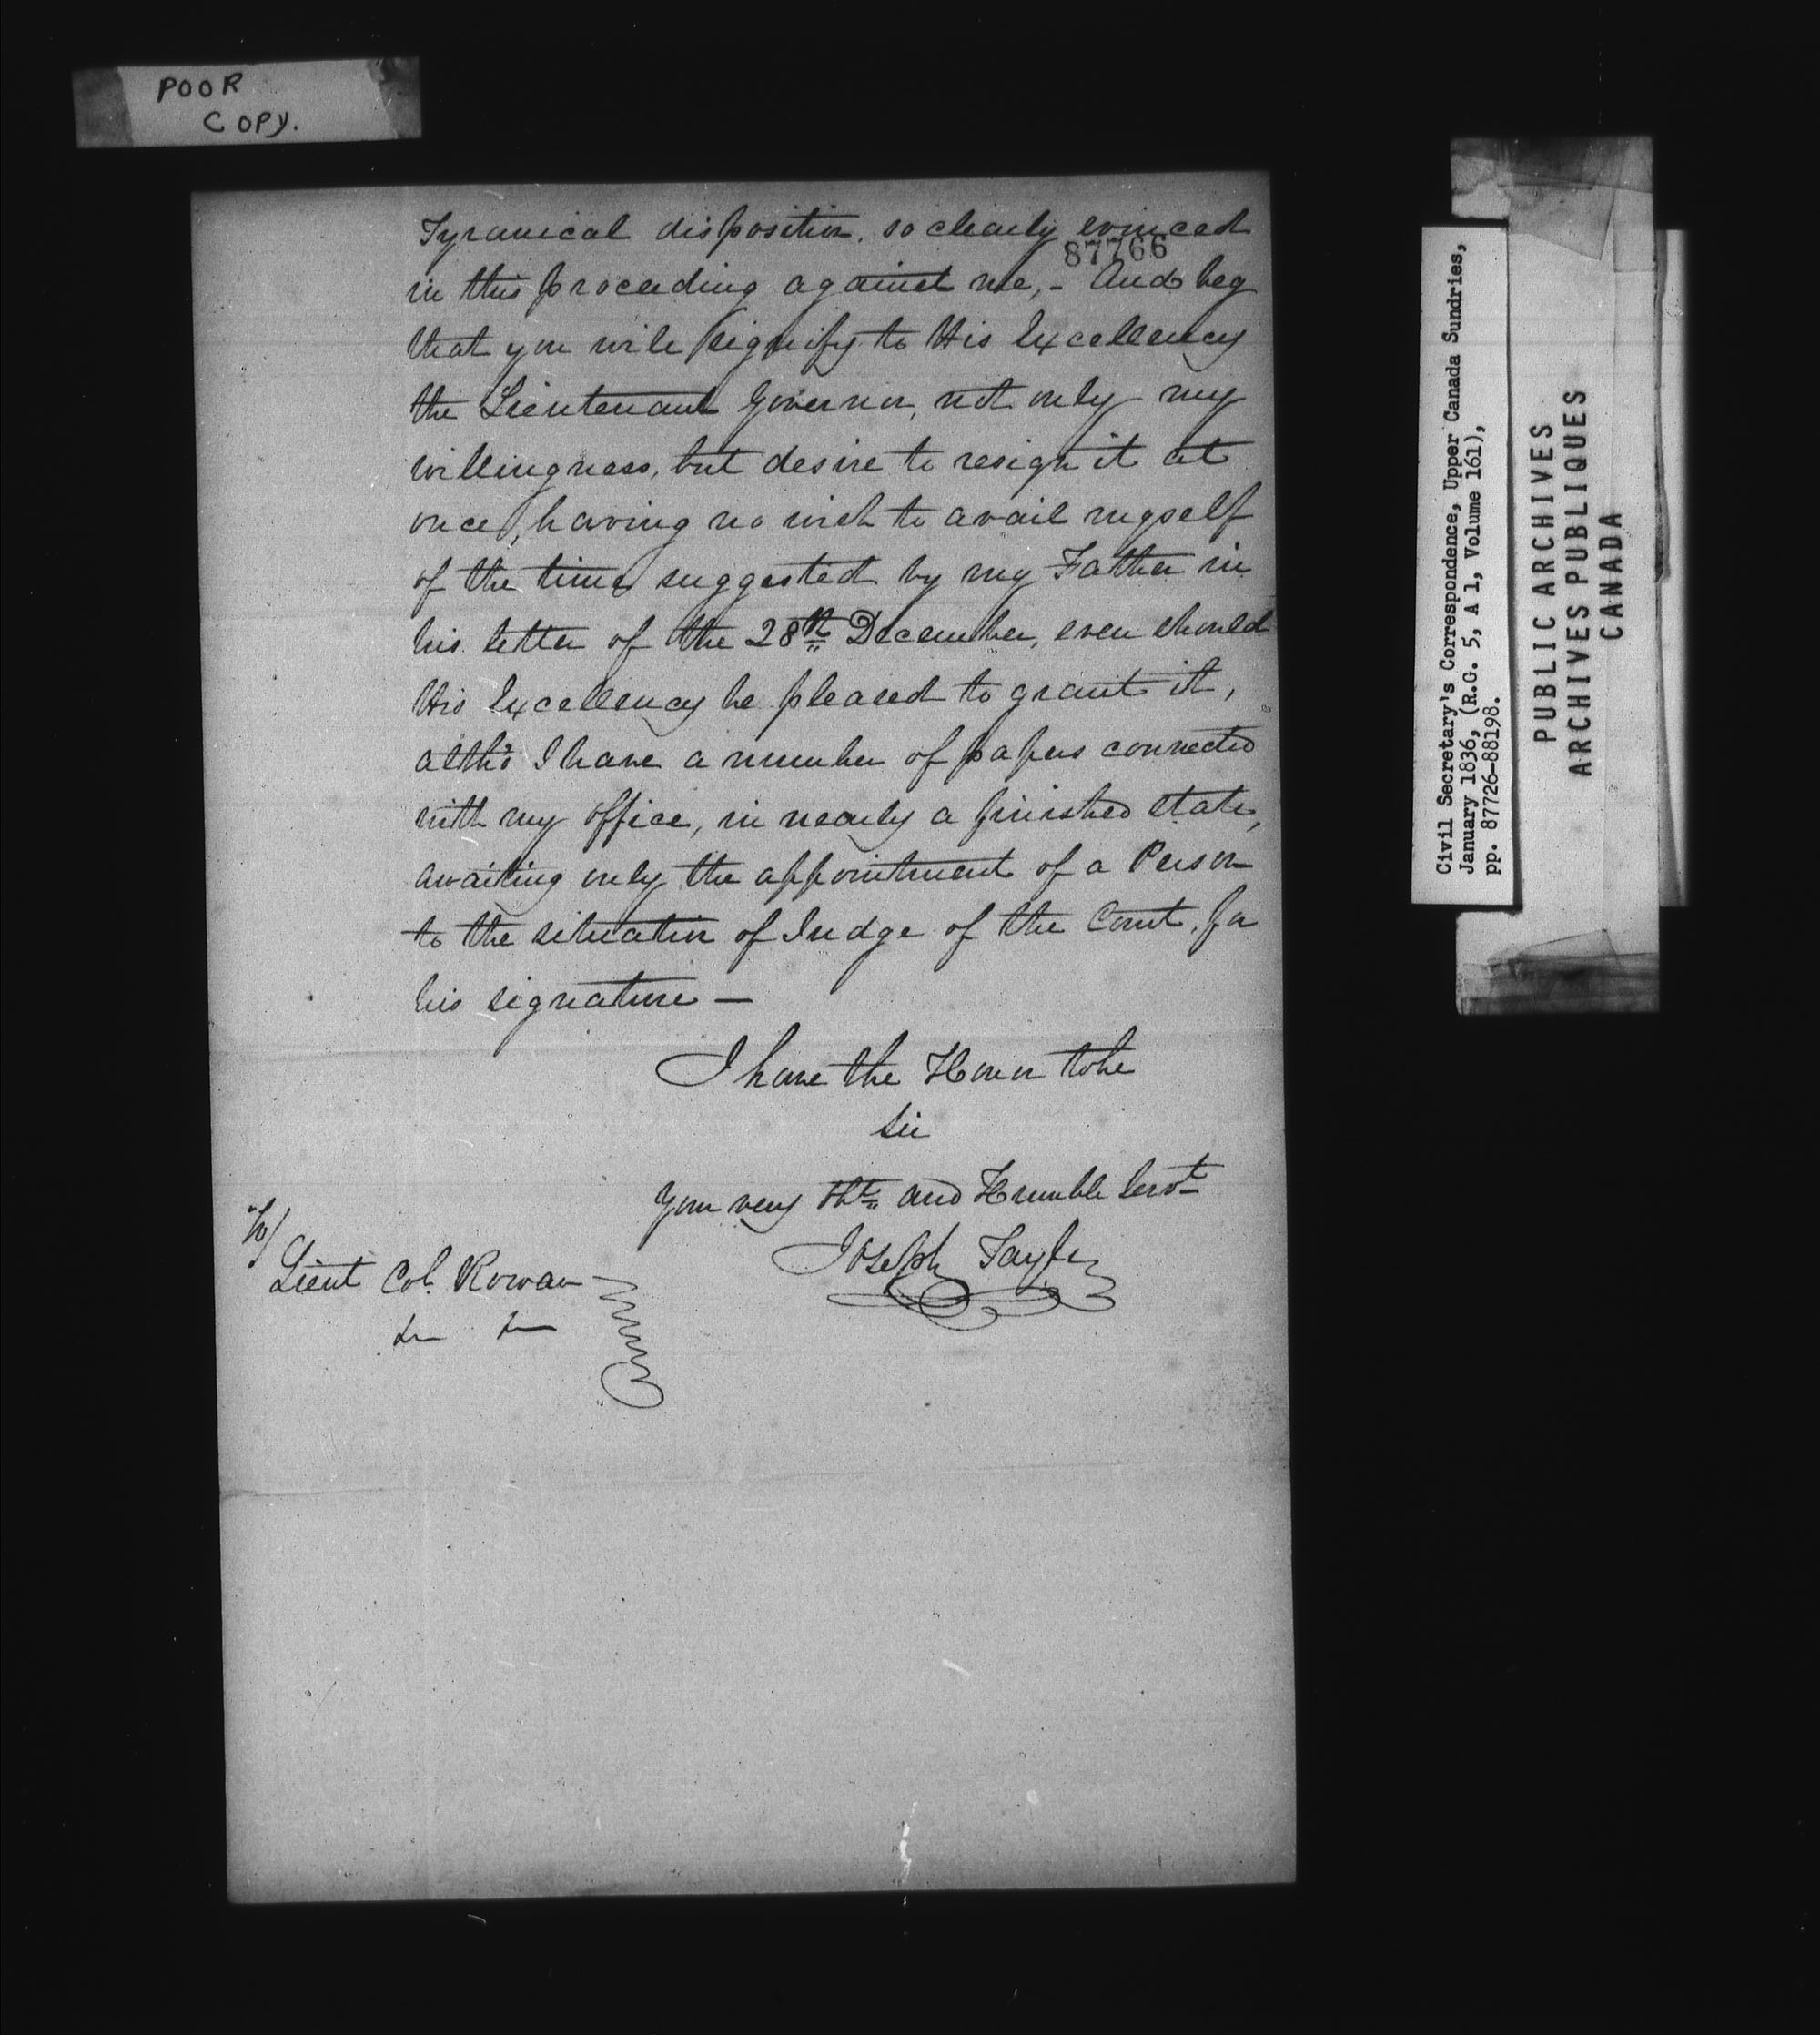 POOR
COPY.
Tyranical disposition, so clearly evinced
87766
in this proceeding against me,- And beg
that you will signify to His Excellency
the Lieutenant Governor, not only my
willingness, but desire to resign it at
once, having no wish to avail myself
of the time suggested by my Father in
his letter of the 28th December, even should
His Excellency be pleased to grant it,
altho' I have a number of papers connected
with my office, in nearly a finished state,
awaiting only the appointment of a Person
to the situation of Judge of the Court, for
his signature —
I have the Honor to be
Sir
Your very Obt. and Humble Servt.
Joseph Tayler
To/
Lieut Col. Rowan
Civil Secretary's Correspondence, Upper Canada Sundries,
January 1836, (R.G. 5, A 1, Volume 161),
pp. 87726-88198.
PUBLIC ARCHIVES
ARCHIVES PUBLIQUES
CANADA